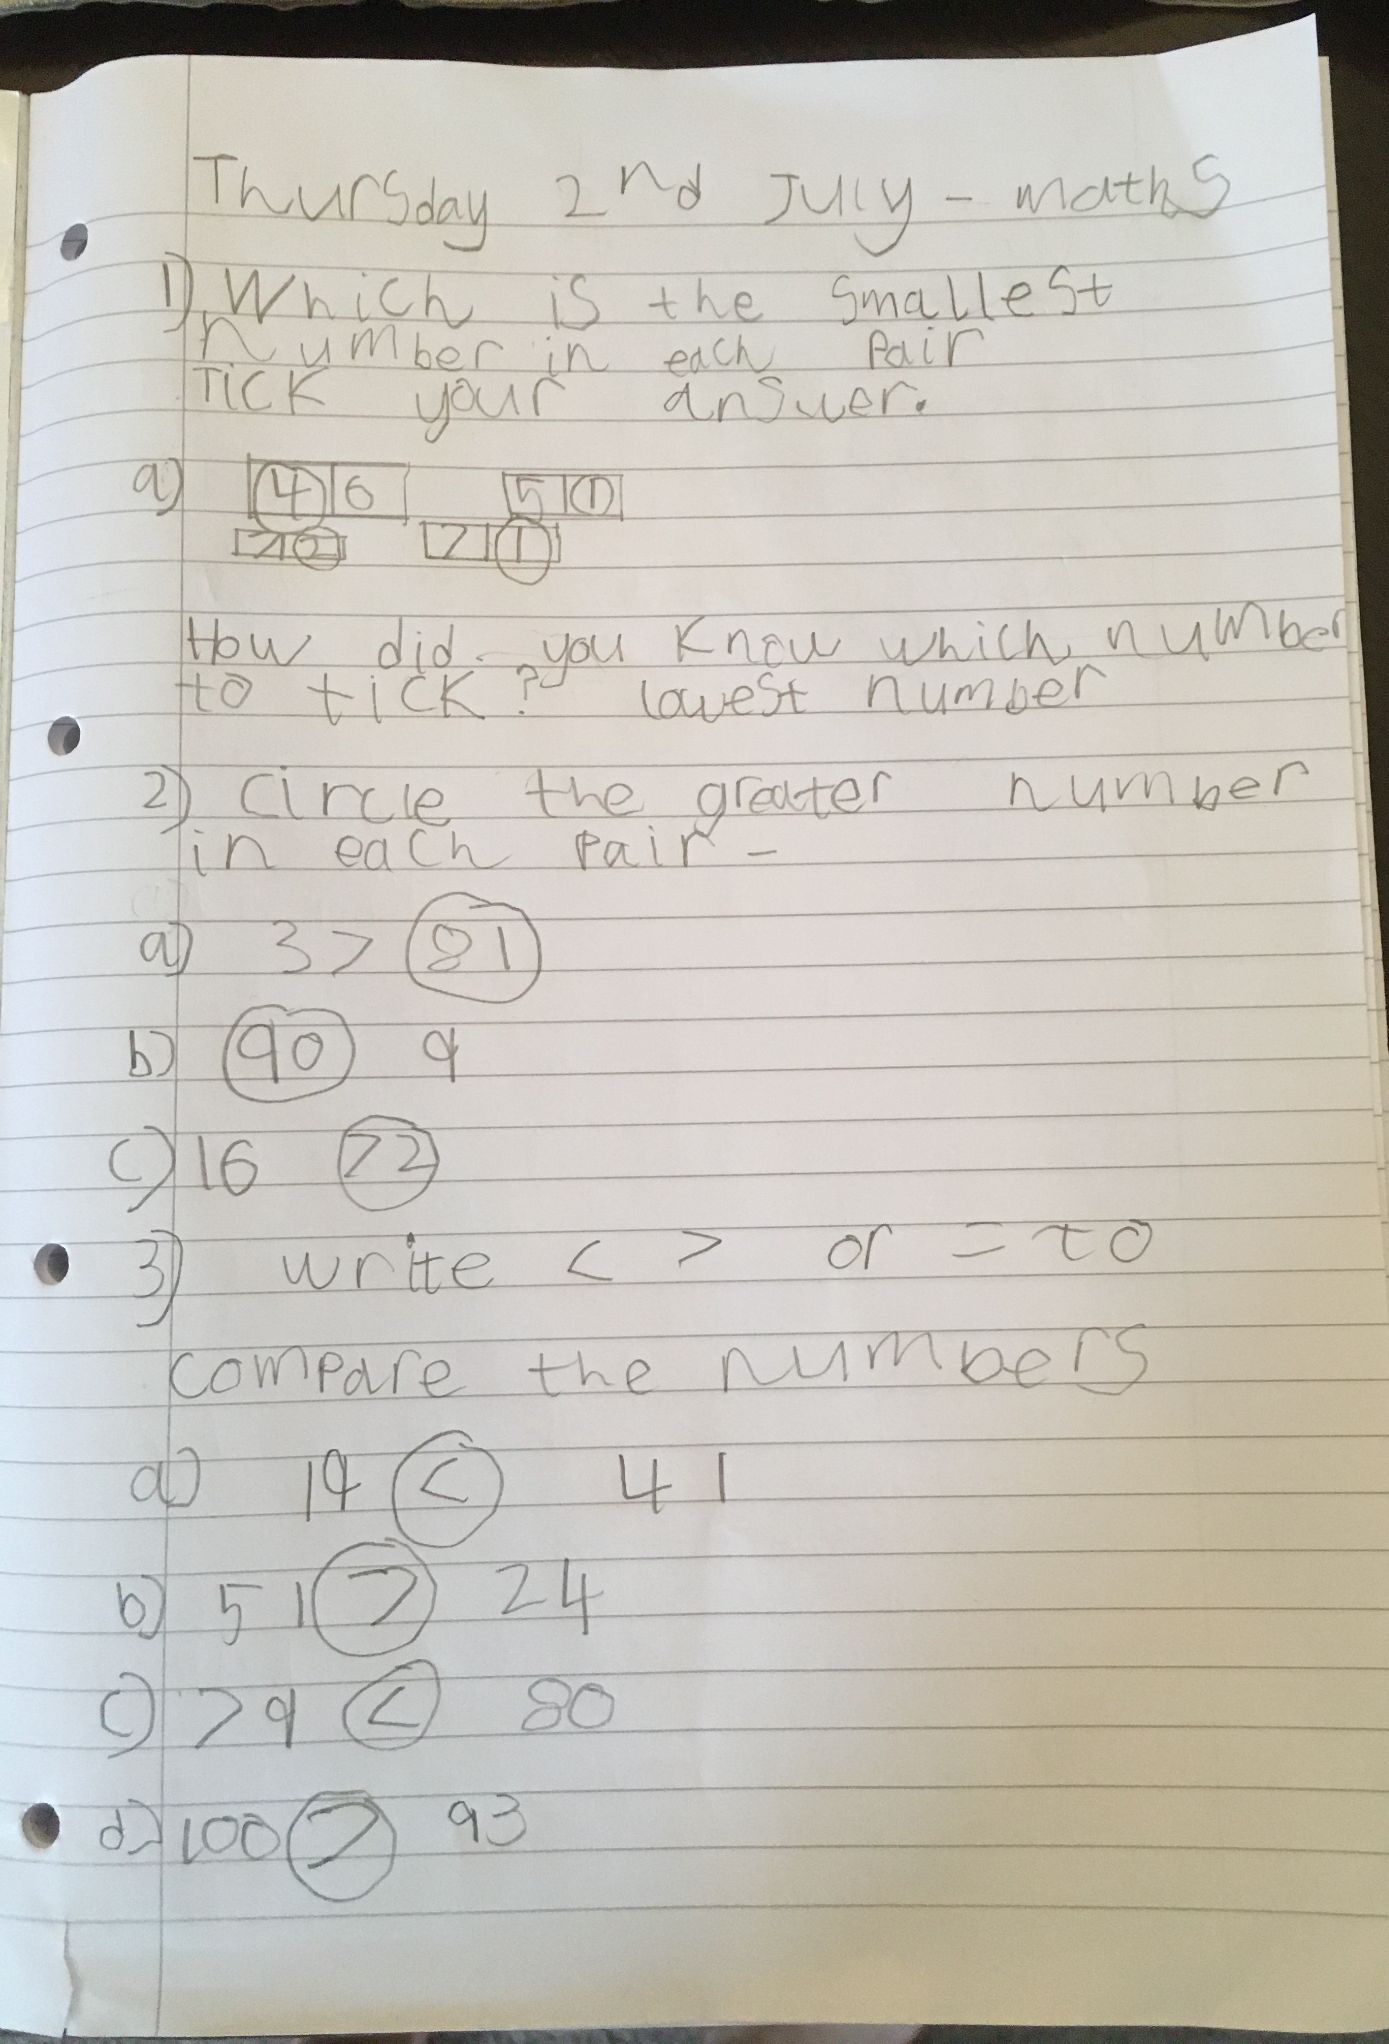 Thursday 2nd July - maths
1) Which is the smallest
number in each pair
TICK your answer.
a) 4 6 5 1
7 2 7 1
How did you know which number
to tick? lowest number
2) circle the greater number
in each pair -
a) 3 7 81
b) 90 9
c) 16 72
3) write < > or = to
compare the numbers
a) 19 < 41
b) 51 > 24
c) 79 < 80
d) 100 > 93